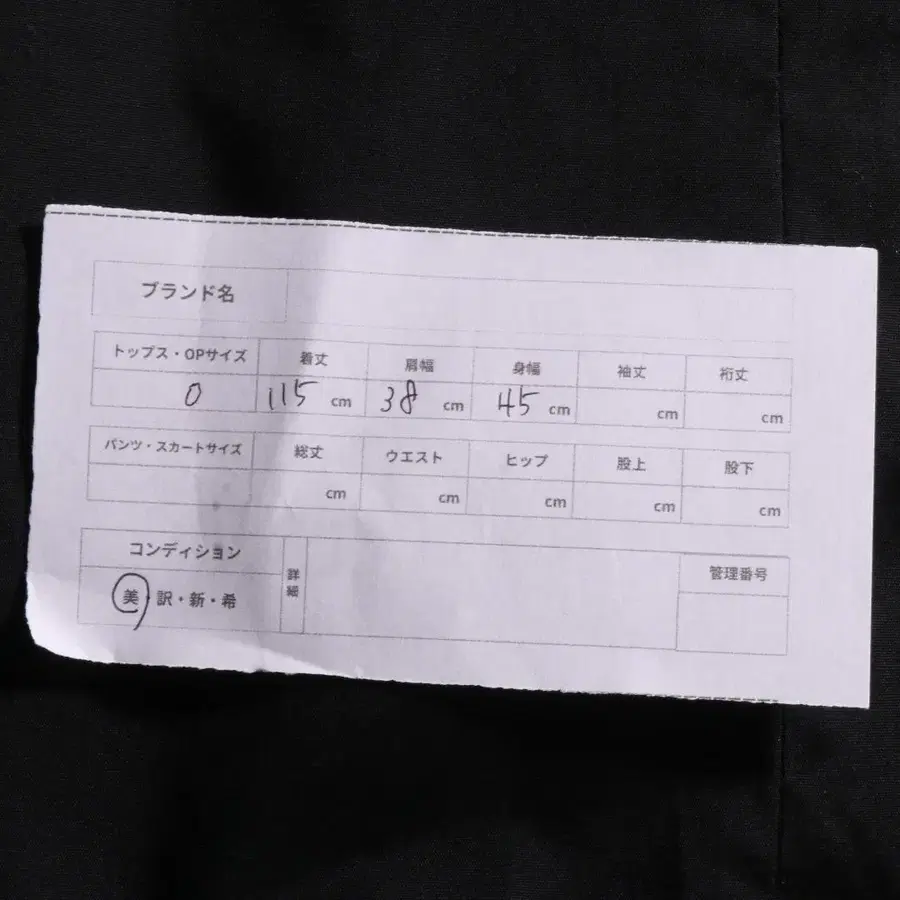 ブランド名
トップス・OPサイズ 着丈 肩幅 身幅 袖丈 裄丈
0 115 cm 38 cm 45 cm cm cm
パンツ・スカートサイズ 総丈 ウエスト ヒップ 股上 股下
cm cm cm cm cm
コンディション 詳細 管理番号
美・訳・新・希